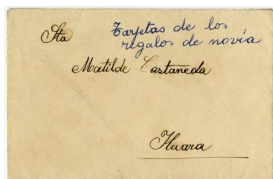 Tarjetas de los
regalos de novia
Sta
Matilde Castañeda
Huara